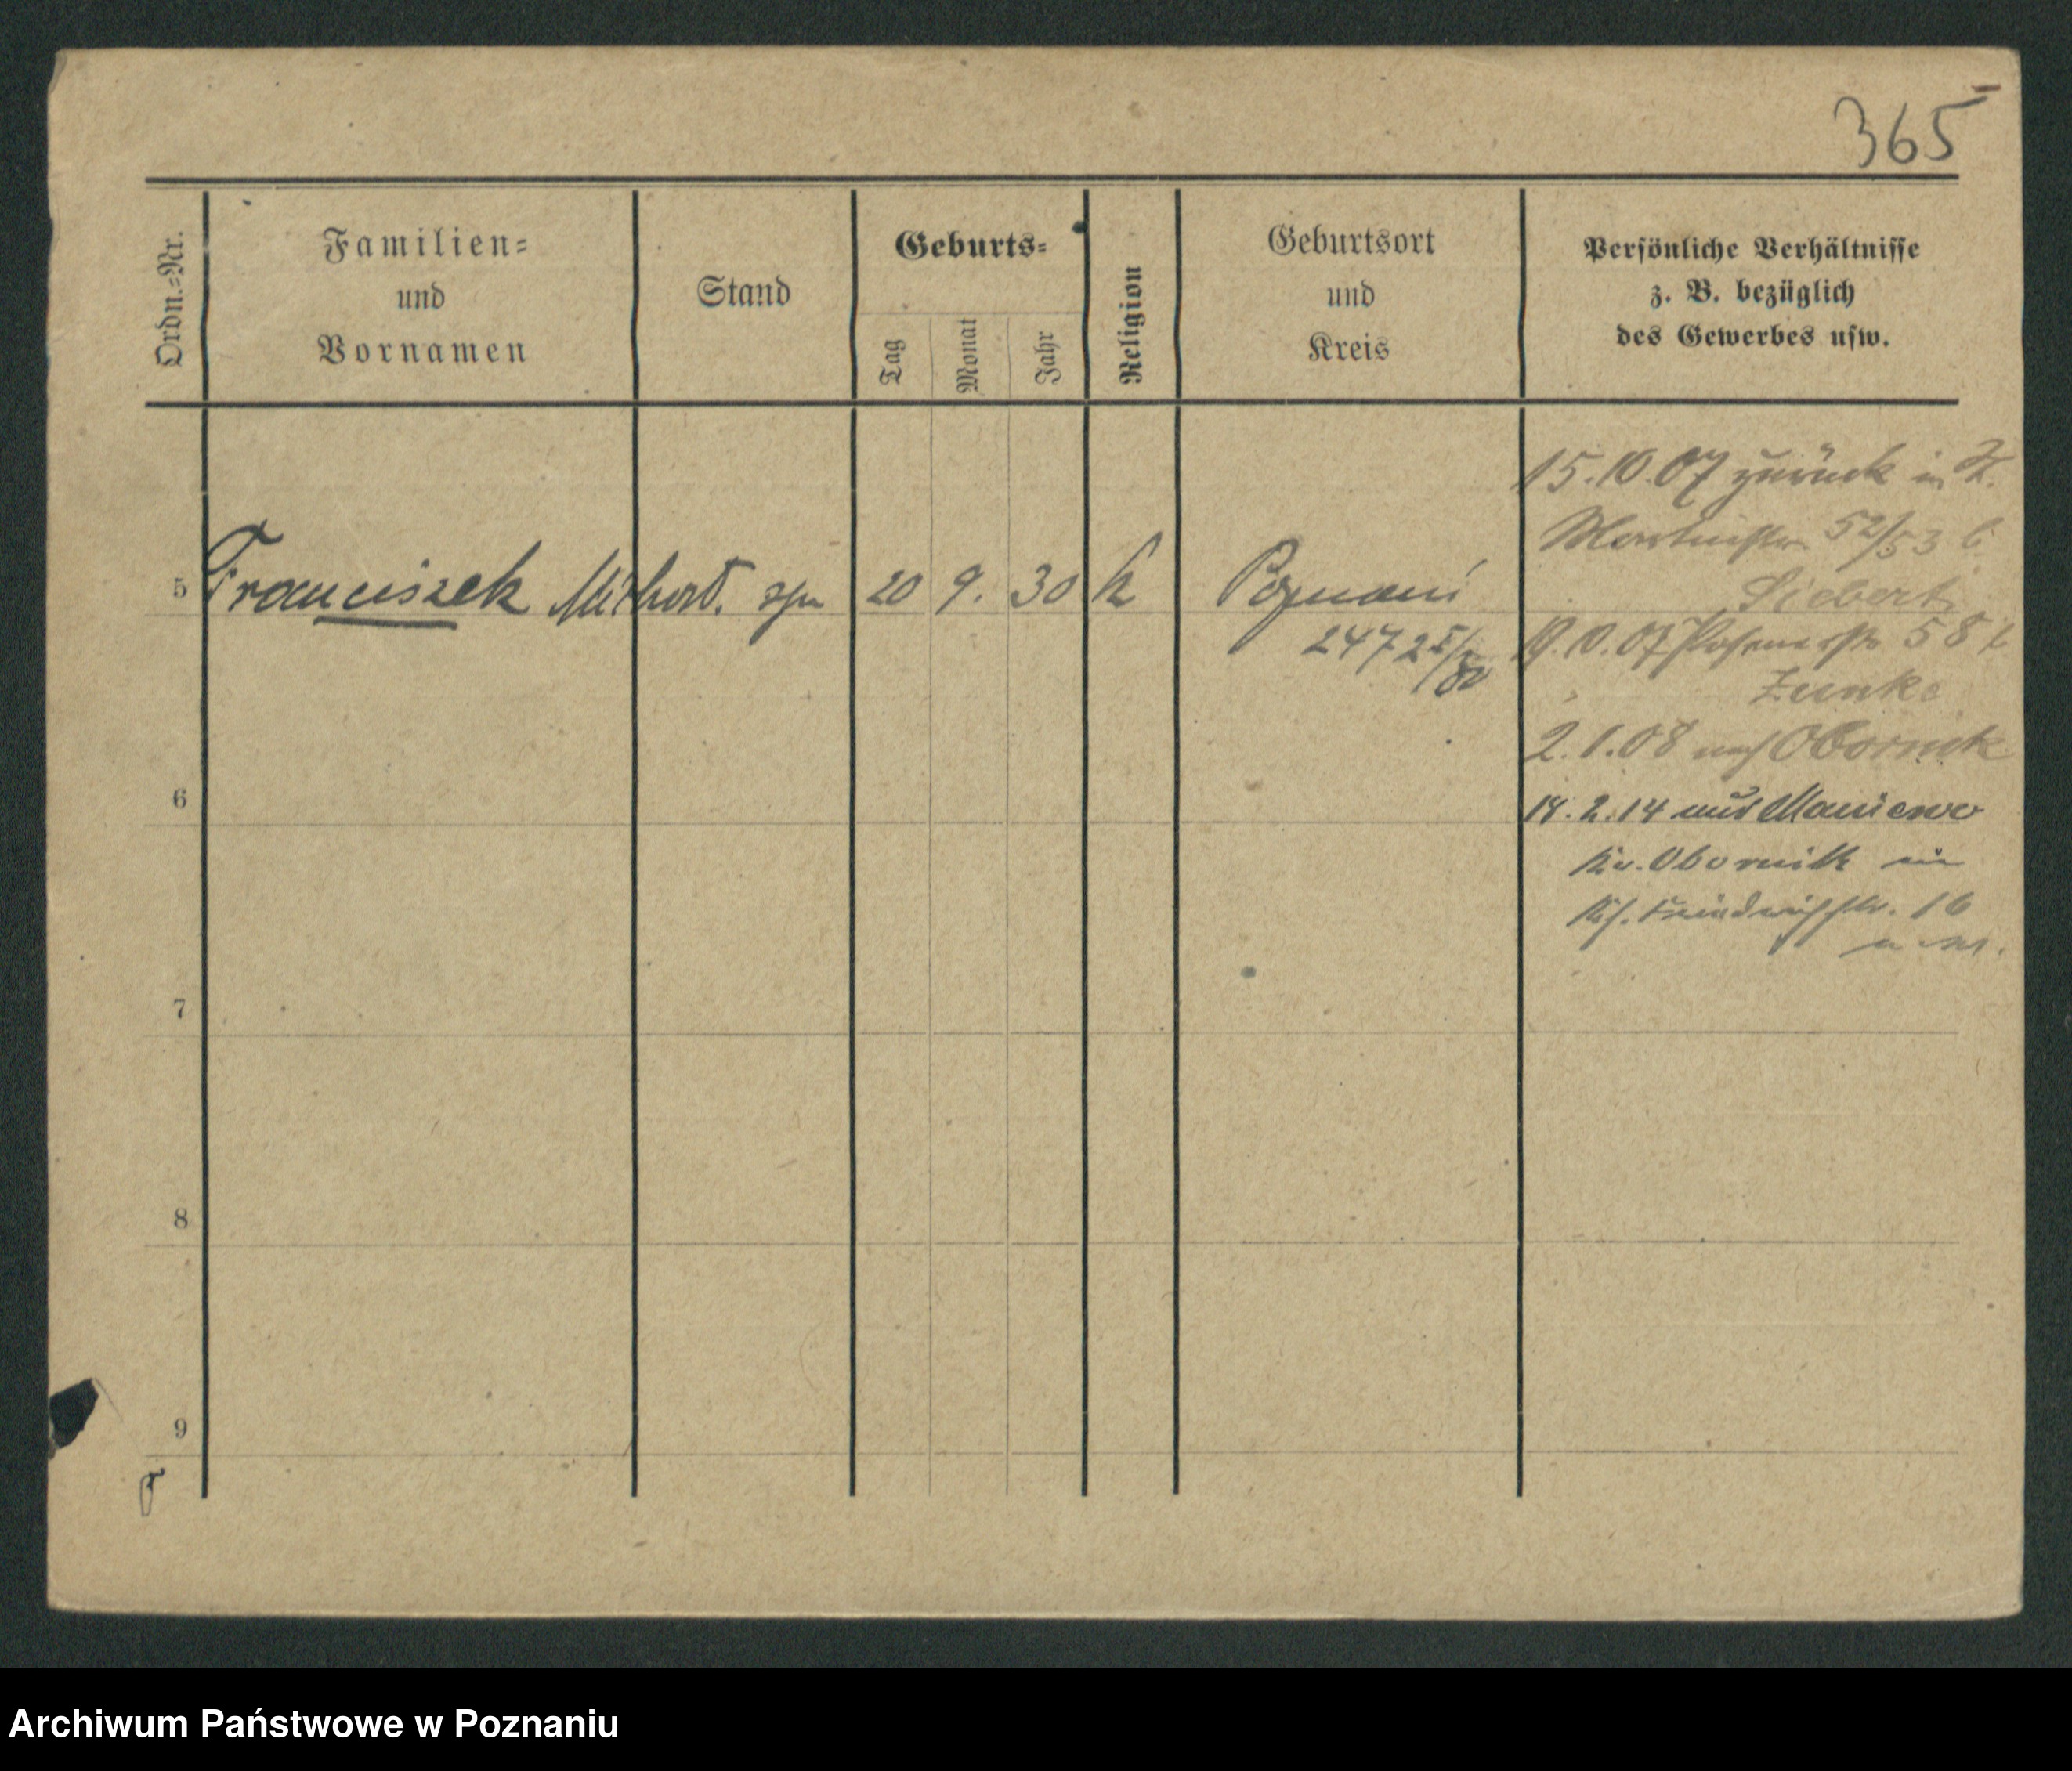 365
Ordn.-Nr.
Familien-
und
Vornamen
Stand
Geburts-
Tag
Monat
Jahr
Religion
Geburtsort
und
Kreis
Persönliche Verhältnisse
z. B. bezüglich
des Gewerbes usw.
15.10.07 zurück in
Martinstr. 52/53 b
Siebert
5 Franciszek 20 9. 30 k Poznań
2472
.07 58
Zunke
2.1.08 nach Obornik
6
18.2.14 aus Maniewo
Kr. Obornik in
16
7
8
9
Archiwum Państwowe w Poznaniu